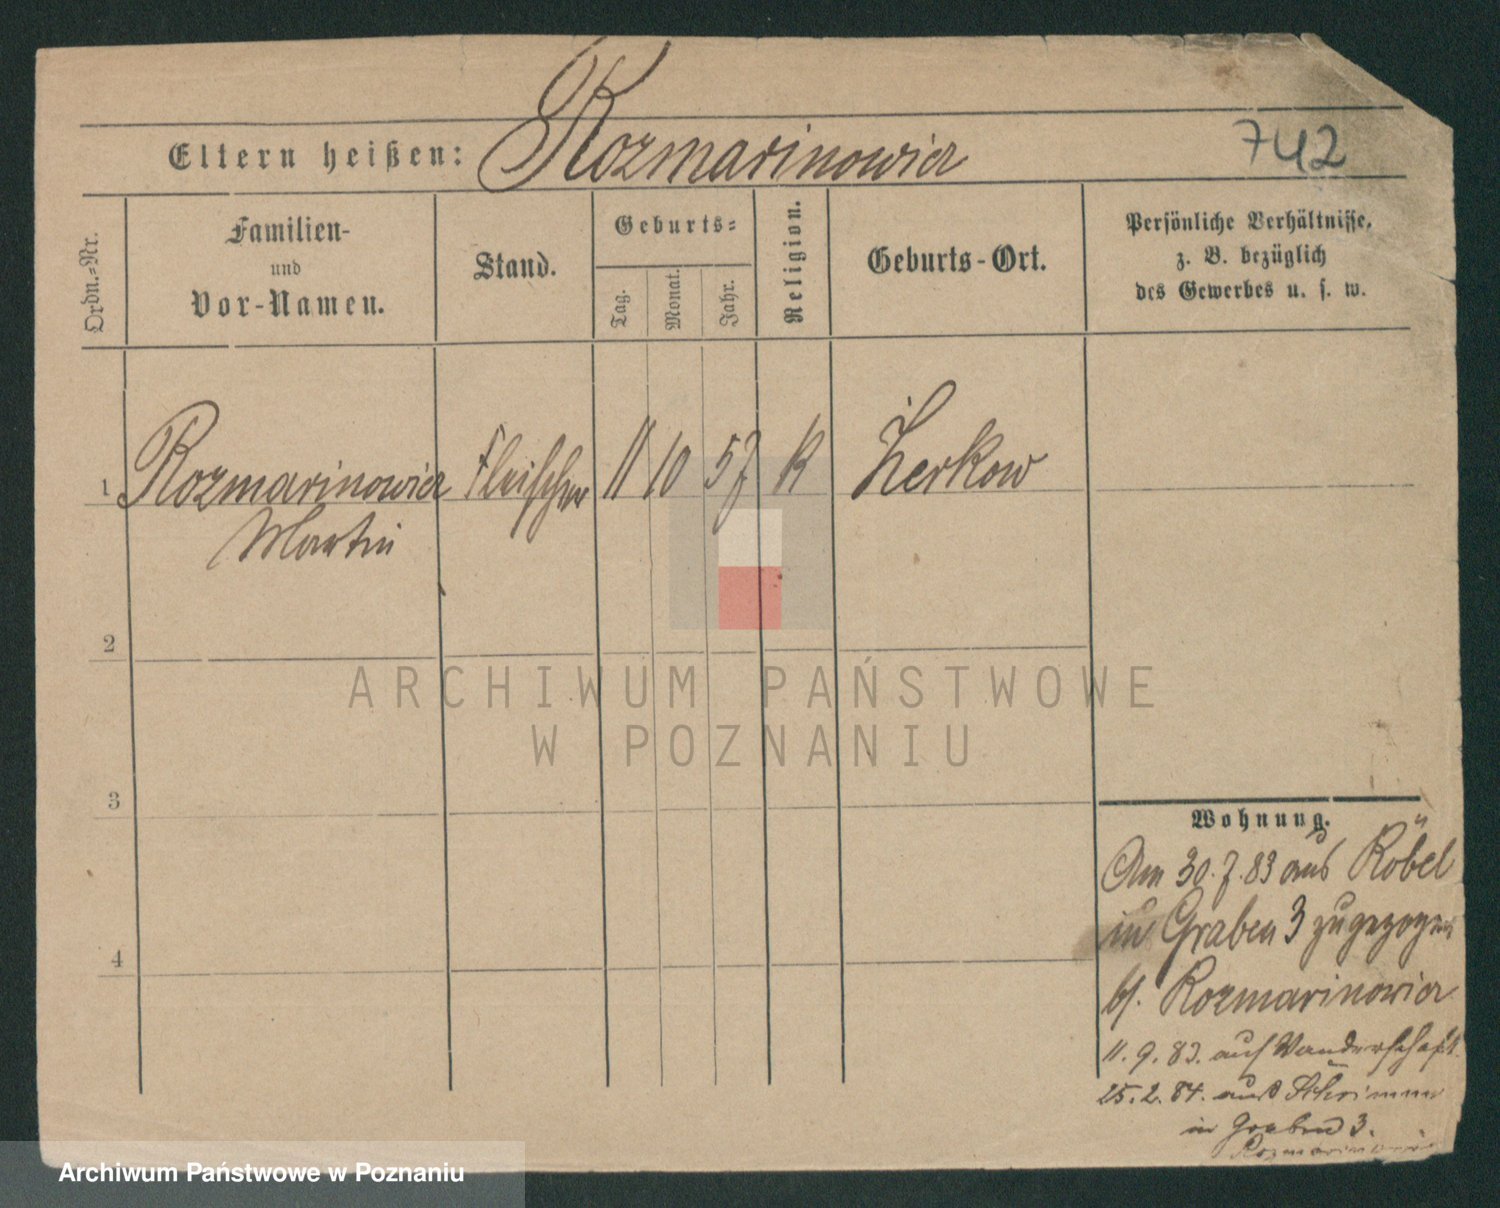 Eltern heißen: Rozmarinowicz
742
Ordn.-Nr.
Familien-
und
Vor-Namen.
Stand.
Geburts-
Tag.
Monat.
Jahr.
Religion.
Geburts-Ort.
Persönliche Verhältnisse,
z. B. bezüglich
des Gewerbes u. s. w.
1 Rozmarinowicz Fleischer 11 10 57 K Żerkow
Martin
2
ARCHIWUM PAŃSTWOWE
W POZNANIU
3
Wohnung.
Am 30.7.83 aus Röbel
in Graben 3 zugezogen
b/. Rozmarinowicz
4
11.9.83. auf Wanderschaft
25.2.84. aus Schrimm
in Graben 3.
Rozmarinowicz
Archiwum Państwowe w Poznaniu